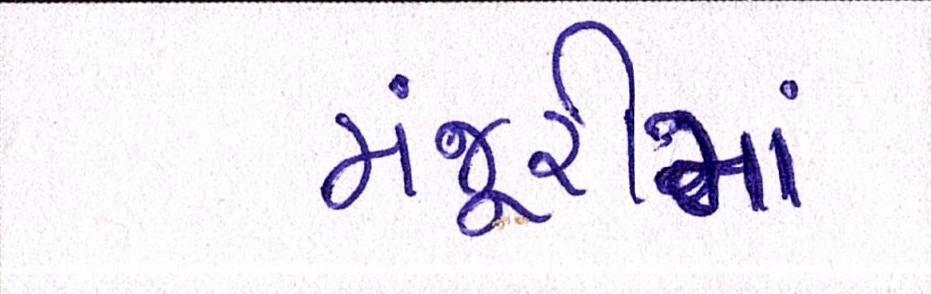 મંજૂરીમાં